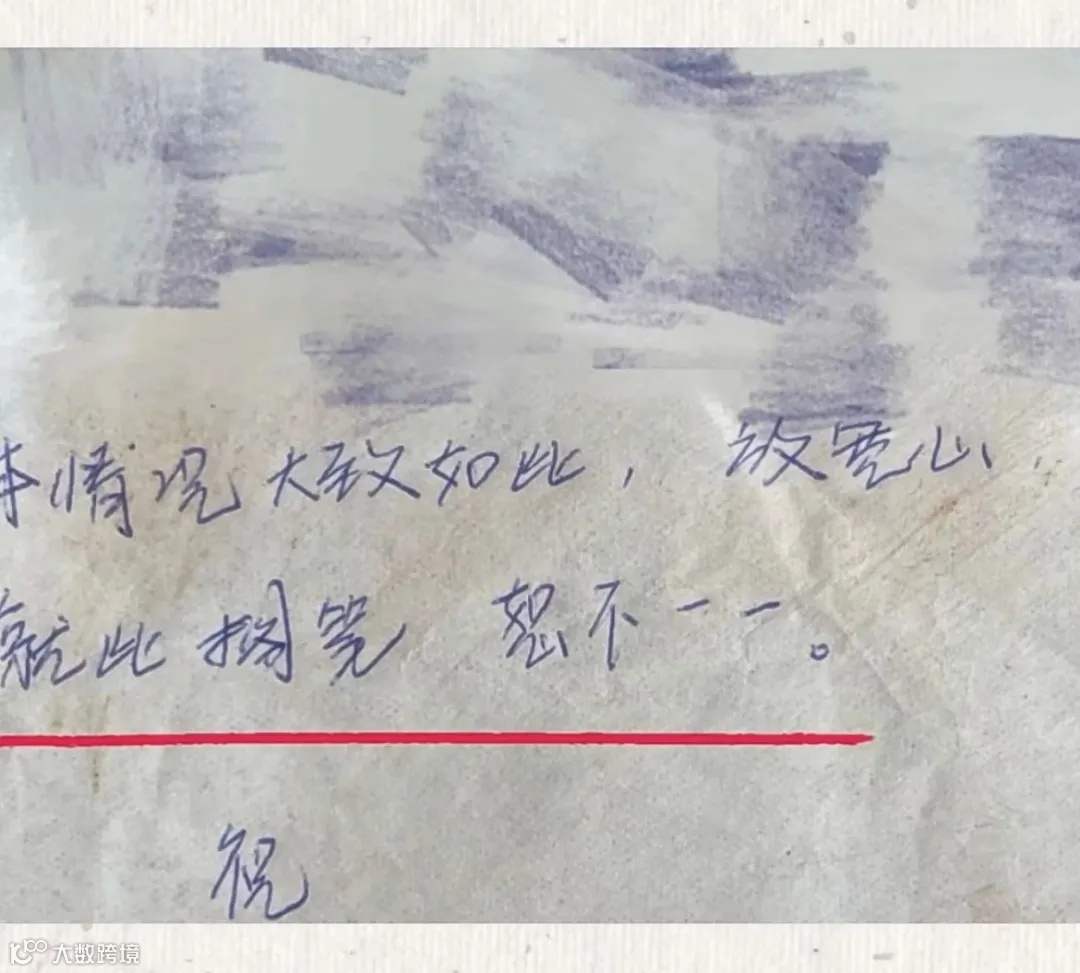 情况大致如此，放宽心
就此搁笔 恕不一一。
祝
大数跨境